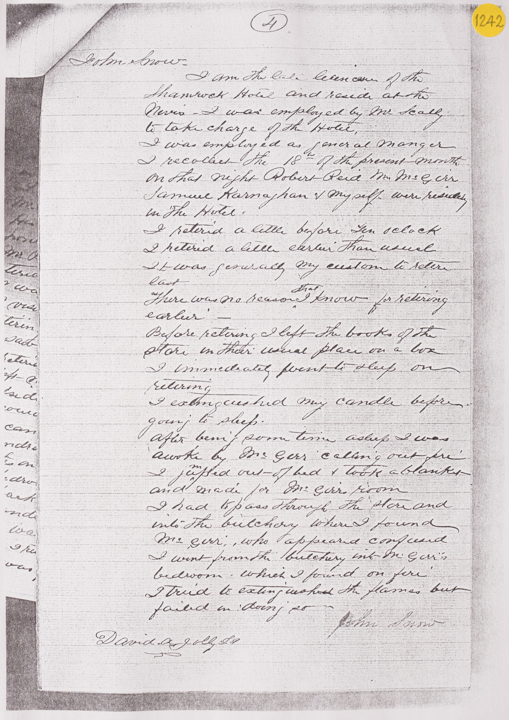 4
1242
John Snow
I am the late licencee of the
Shamrock Hotel and reside at the
Nevis - I was employed by Mr Scally
to take charge of the Hotel,
I was employed as general manger
I recollect the 18th of the present month
on that night Robert Reid Mr McGirr
Samuel Karnaghan & myself were residing
in the Hotel.
I reterid a little before Ten oclock
I retired a little earlier than usual
It was generally my custom to retire
last
There was no reason that I know for retiring
earlier -
Before retiring I left the books of the
Store in their usual place on a box
I immediately went to sleep on
retiring
I extinguished my candle before
going to sleep.
After being some time asleep I was
awoke by McGirr calling out fire
I jumped out of bed & took a blanket
and made for McGirrs room
I had to pass through the store and
into the butchery where I found
McGirr, who appeared confused
I went from the butchery into McGirr's
bedroom. which I found on fire
I tried to extinguished the flames but
failed in doing so -
John Snow
David A Jolly